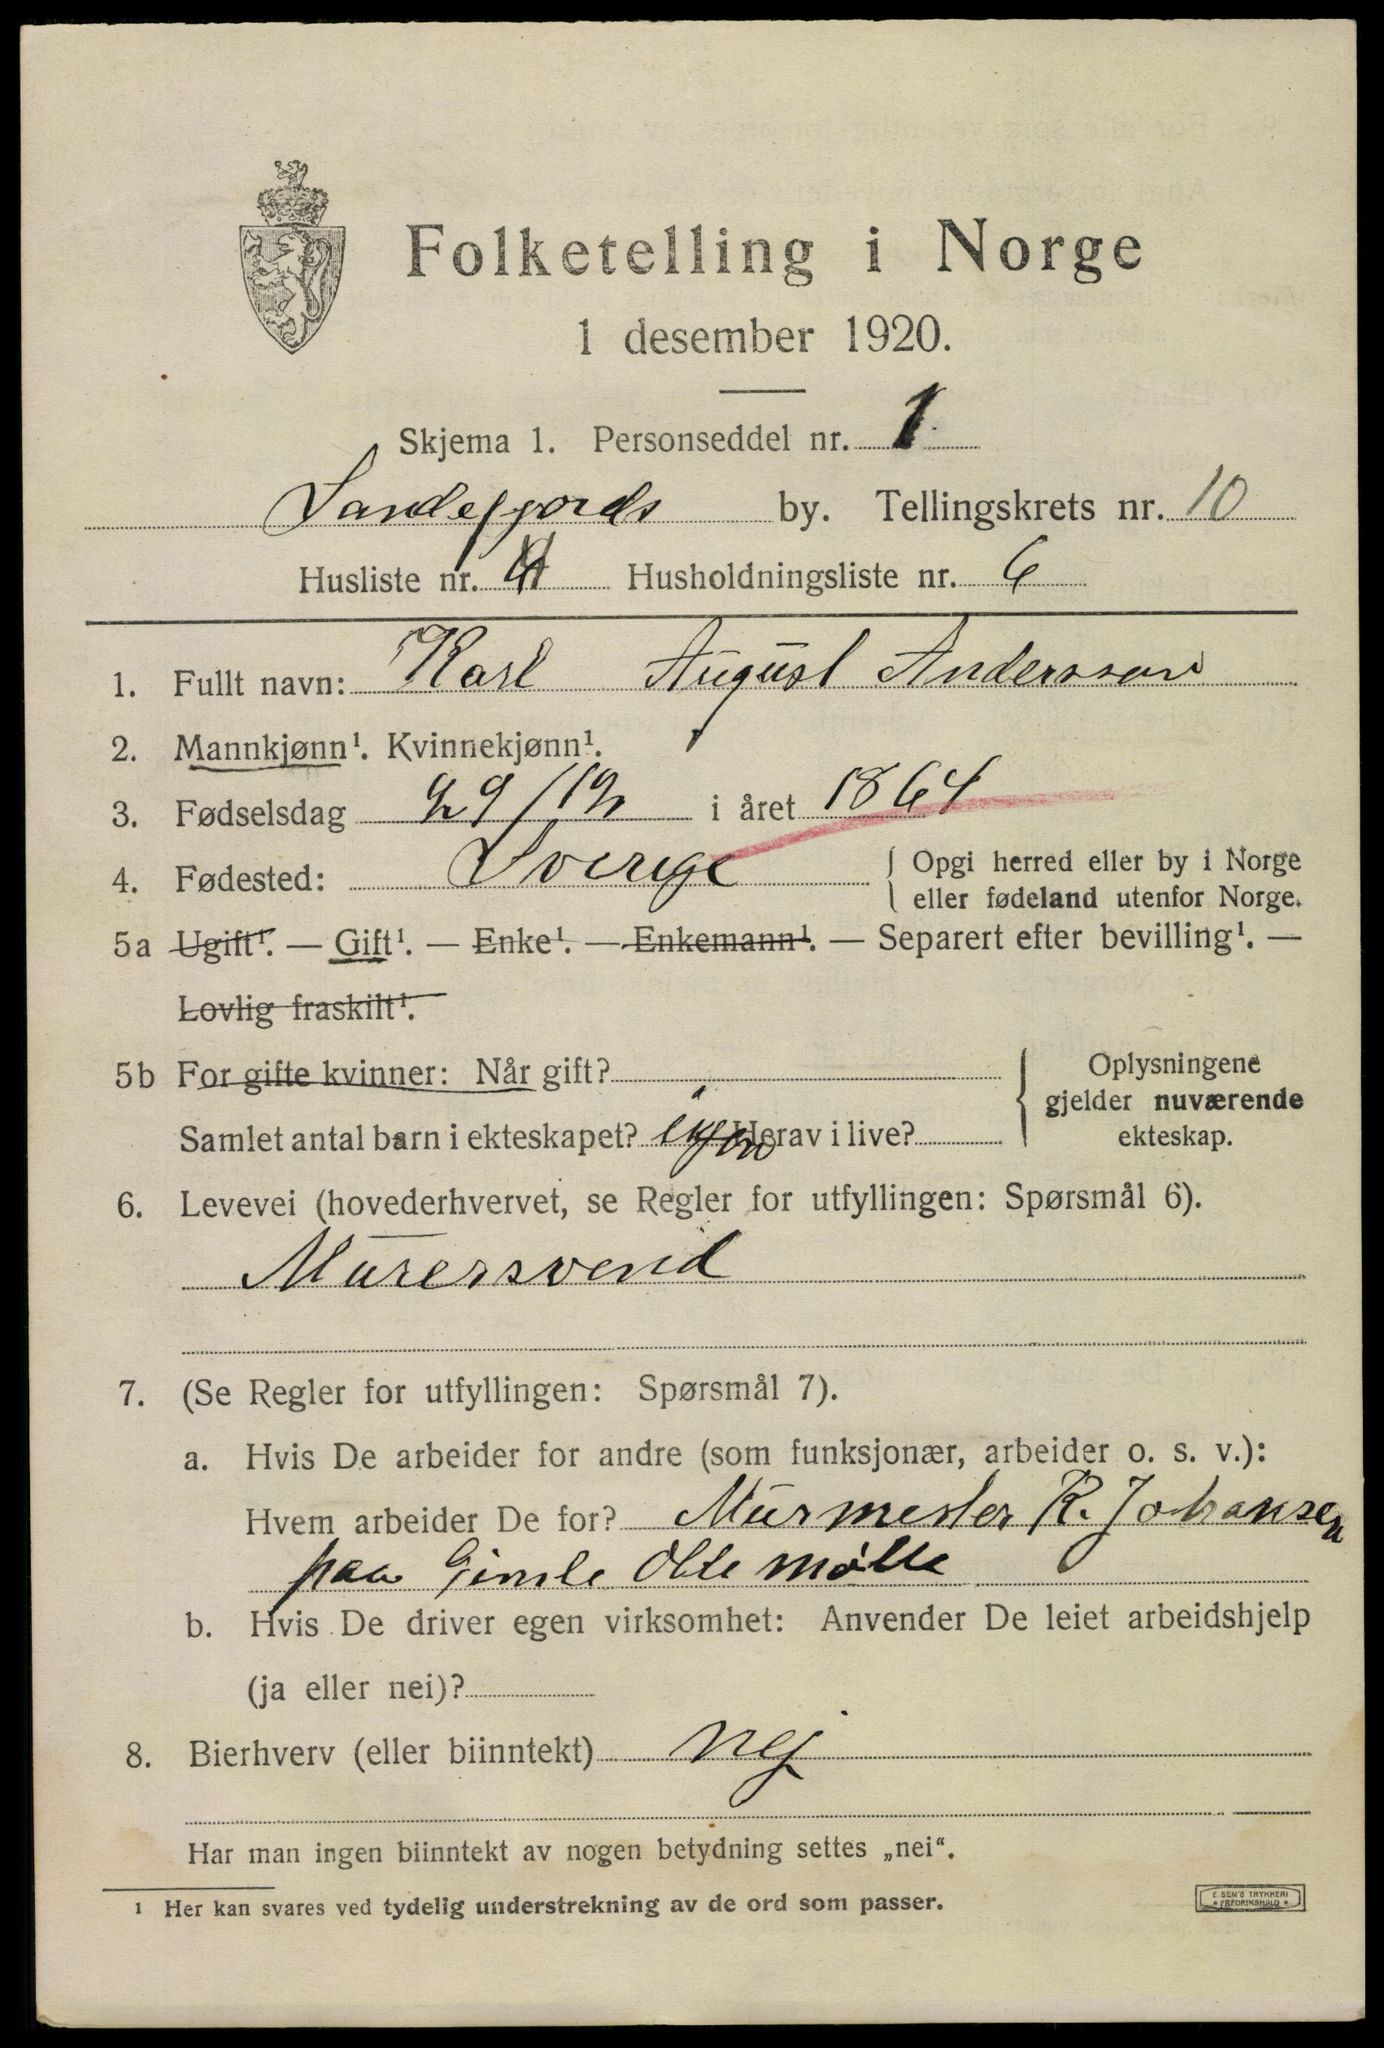 Folketelling i Norge
1 desember 1920.
Skjema 1. Personseddel nr. 1
Sandefjords by. Tellingskrets nr. 10
Husliste nr. Husholdningsliste nr. 6
1. Fullt navn: Karl August Andersson
2. Mannkjønn¹. Kvinnekjønn¹.
3. Fødselsdag 29/12 i året 1864
4. Fødested: Sverige { Opgi herred eller by i Norge
eller fødeland utenfor Norge.
5a Ugift¹. — Gift¹. — Enke¹. — Enkemann¹. — Separert efter bevilling¹. —
Lovlig fraskilt¹.
5b For gifte kvinner: Når gift?
Samlet antal barn i ekteskapet? ingen Herav i live?
{ Oplysningene
gjelder nuværende
ekteskap.
6. Levevei (hovederhvervet, se Regler for utfyllingen: Spørsmål 6).
Murersvend
7. (Se Regler for utfyllingen: Spørsmål 7).
a. Hvis De arbeider for andre (som funksjonær, arbeider o. s. v.):
Hvem arbeider De for? Murmester K. Johansen
paa Gimle Olle mølle
b. Hvis De driver egen virksomhet: Anvender De leiet arbeidshjelp
(ja eller nei)?
8. Bierhverv (eller biinntekt) nej
Har man ingen biinntekt av nogen betydning settes „nei“.
¹ Her kan svares ved tydelig understrekning av de ord som passer.
E. SEM'S TRYKKERI
FREDRIKSHALD